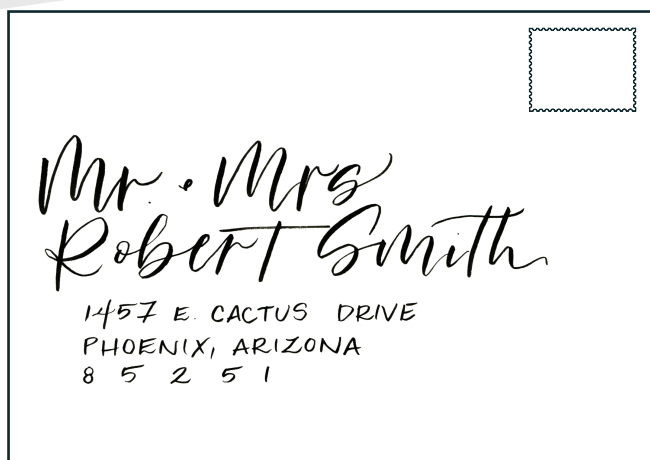 Mr. • Mrs
Robert Smith
1457 E. CACTUS DRIVE
PHOENIX, ARIZONA
8 5 2 5 1